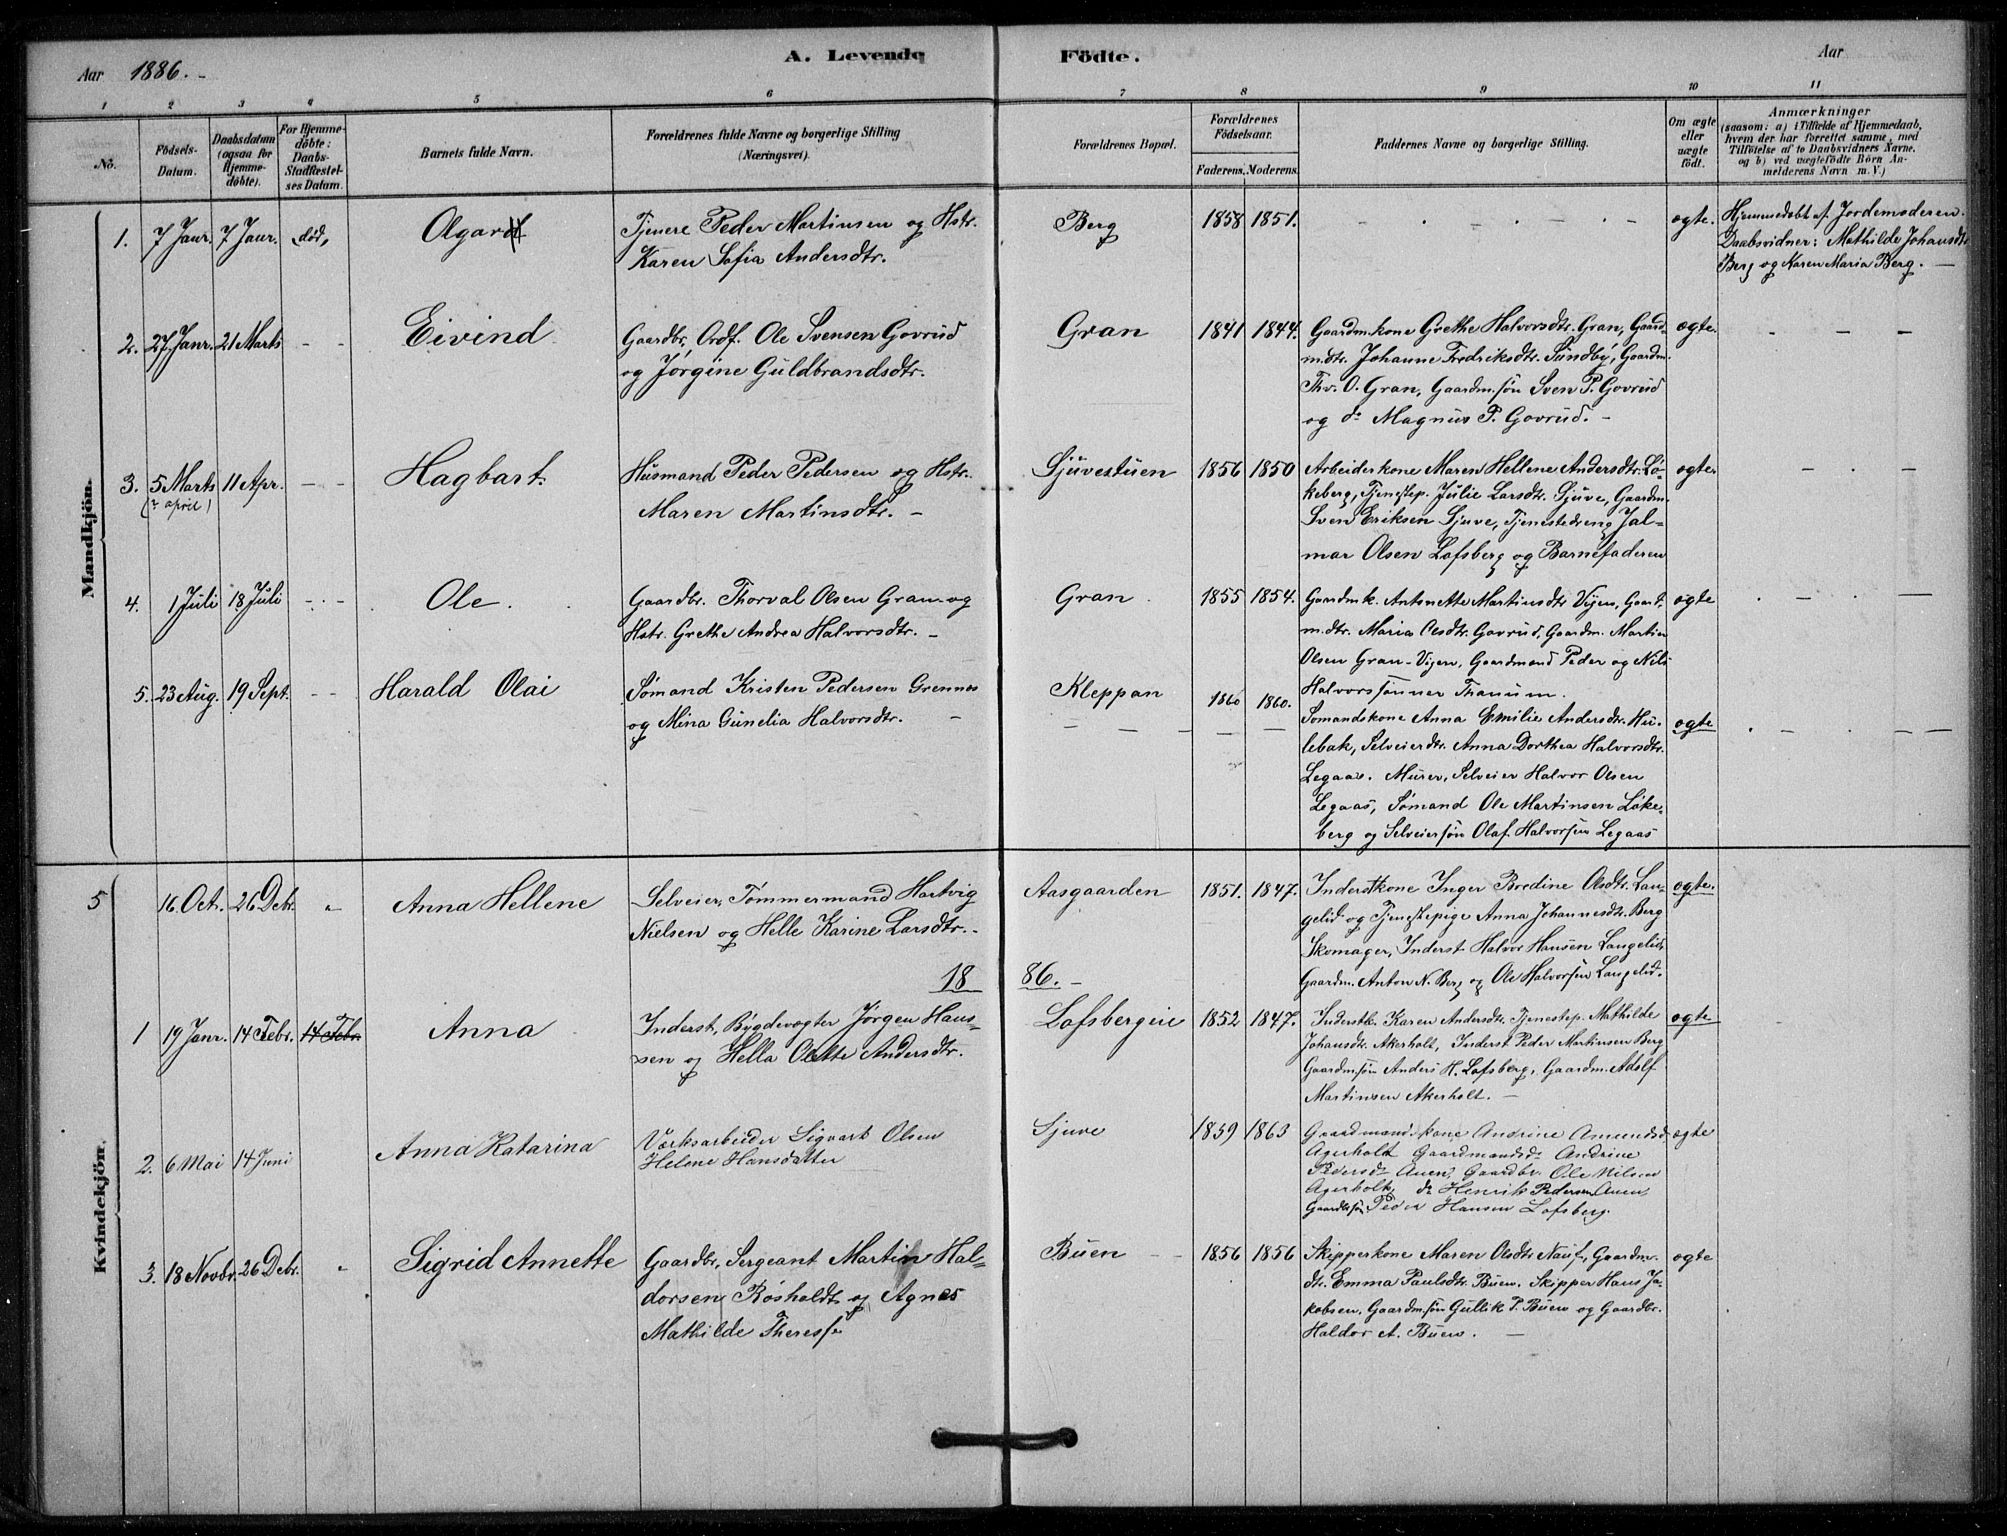 Aar 1886. -
A. Levende
Födte.
Aar
1 2 3 4 5 6 7 8 9 10 11
No.
Födsels-
Datum.
Daabsdatum
(ogsaa for
Hjemme-
döbte).
For Hjemme-
döbte:
Daabs-
Stadfestel-
ses Datum.
Barnets fulde Navn.
Forældrenes fulde Navne og borgerlige Stilling
(Næringsvei).
Forældrenes Bopæl.
Forældrenes
Födselsaar.
Faderens. Moderens.
Faddernes Navne og borgerlige Stilling.
Om ægte
eller
uægte
født.
Anmærkninger
(saasom: a) i Tilfælde af Hjemmedaab,
hvem der har forrettet samme, med
Tilföielse af to Daabsvidners Navne,
og b) ved uægtefødte Börn An-
melderens Navn m. V.)
Mandkjön.
1. 7 Janr. 7 Janr. død,
Olgard
Tjenere Peder Martinsen og Hstr.
Karen Sofia Andersdtr.
Berg
1858 1851.
ægte.
Hjemmedøbt af Jordemoderen.
Daabsvidner: Mathilde Johansdtr
Berg og Karen Maria Berg. -
2. 27 Janr. 21 Marts - -
Eivind
Gaardbr. Ordf. Ole Svensen Govrud
og Jørgine Guldbrandsdtr.
Gran
1841 1844.
Gaardm.kone Grethe Halvorsdtr. Gran, Gaard-
m.dtr. Johanne Fredriksdtr. Sundby, Gaardm.
Thv. O. Gran, Gaardm.søn Sven P. Govrud
og do Magnus P. Govrud. -
ægte.
3. 5 Marts 11 Apr. - -
(? april)
Hagbart.
Husmand Peder Pedersen og Hstr.
Maren Martinsdtr. -
Sjuvestuen
1856 1850
Arbeiderkone Maren Hellene Andersdtr. Lø-
keberg, Tjenestep. Julie Larsdtr. Sjuve, Gaardm.
Sven Eriksen Sjuve, Tjenestedreng Jal-
mar Olsen Lofsberg og Barnefaderen
ægte.
4. 1 Juli 18 Juli - -
Ole.
Gaardbr. Thorval Olsen Gran og
Hstr. Grethe Andrea Halvorsdtr. -
Gran.
1855 1854.
Gaardmk. Antonette Martinsdtr Vijen, Gaard-
m.dtr. Maria Olsdtr. Govrud, Gaardm. Martin
Olsen Gran-Vijen, Gaardmænd Peder og Nils
Halvorssønner Thanum.
ægte
5. 23 Aug. 19 Sept. - -
Harald Olai
Sømand Kristen Pedersen Grennes
og Mina Gunelia Halvorsdtr. -
Kleppan
1860 1860.
Sømandskone Anna Emilie Andersdtr. Hu-
lebak, Selveierdtr. Anna Dorthea Halvorsdtr.
Legaas. Murer, Selveier Halvor Olsen
Legaas, Sømand Ole Martinsen Løke-
berg og Selveiersøn Olaf Halvorsen Legaas
ægte
5 16 Oct. 26 Debr. "
Anna Hellene
Selveier, Tømmermand Hartvig
Nielsen og Helle Karine Larsdtr. -
Aasgaarden
1851. 1847.
Inderstkone Inger Bredine Olsdtr. Lan-
gelid og Tjenestepige Anna Johannesdtr. Berg
Skomager, Inderst Halvor Hansen Langelid,
Gaardm. Anton N. Berg og Ole Halvorsen Langelid.
ægte.
18 86. -
Kvindekjön.
1 19 Janr. 14 Febr. 14 Febr.
Anna
Inderst, Bygdevægter Jørgen Han-
sen og Hella Olette Andersdtr.
Lofsbergeie
1852 1847.
Inderstk. Karen Andersdtr. Tjenestep. Mathilde
Johansdtr. Akerholt, Inderst Peder Martinsen Berg
Gaardm.søn Anders H. Lofsberg, Gaardm. Adolf
Martinsen Akerholt. -
ægte
2. 6 Mai 14 Juni
Anna Katarina
Værksarbeider Sigvart Olsen
Helene Hansdatter
Sjuve
1859 1863
Gaardmandskone Andrine Amundsd
Agerholt Gaardmandsd. Andrine
Pedersdr Auen, Gaardbr. Ole Nilsen
Agerholt, do Henrik Pedersen Auen,
Gaardbsøn Peder Hansen Lofsberg.
ægte
3. 18 Novbr. 26 Debr. "
Sigrid Annette
Gaardbr, Sergeant Martin Hal-
dorsen Røsholdt og Agnes
Mathilde Therese
Buen - -
1856 1856
Skipperkone Maren Olsdtr. Nauf, Gaardm.
dtr. Emma Paulsdtr. Buen. Skipper Hans Ja-
kobsen, Gaardm.søn Gullik P. Buen og Gaardbr.
Haldor A. Buen. -
ægte